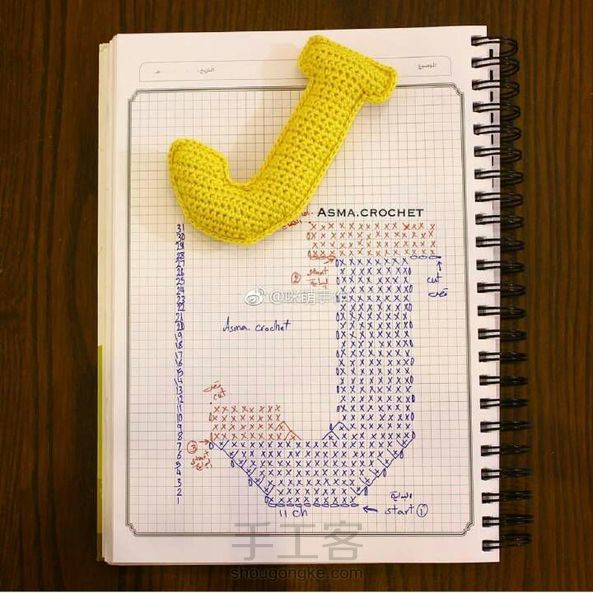 الموضوع:
التاريخ:
ASMA.CROCHET
31
30
29
28
27
26
25
24
23
22
21
20
19
18
17
16
15
14
13
12
11
10
9
8
7
6
5
4
3
2
1
② start
بداية
cut
قص
Asma.crochet
قص
cut
③
start
11 ch
البداية
start ①
手工客
shougongke.com